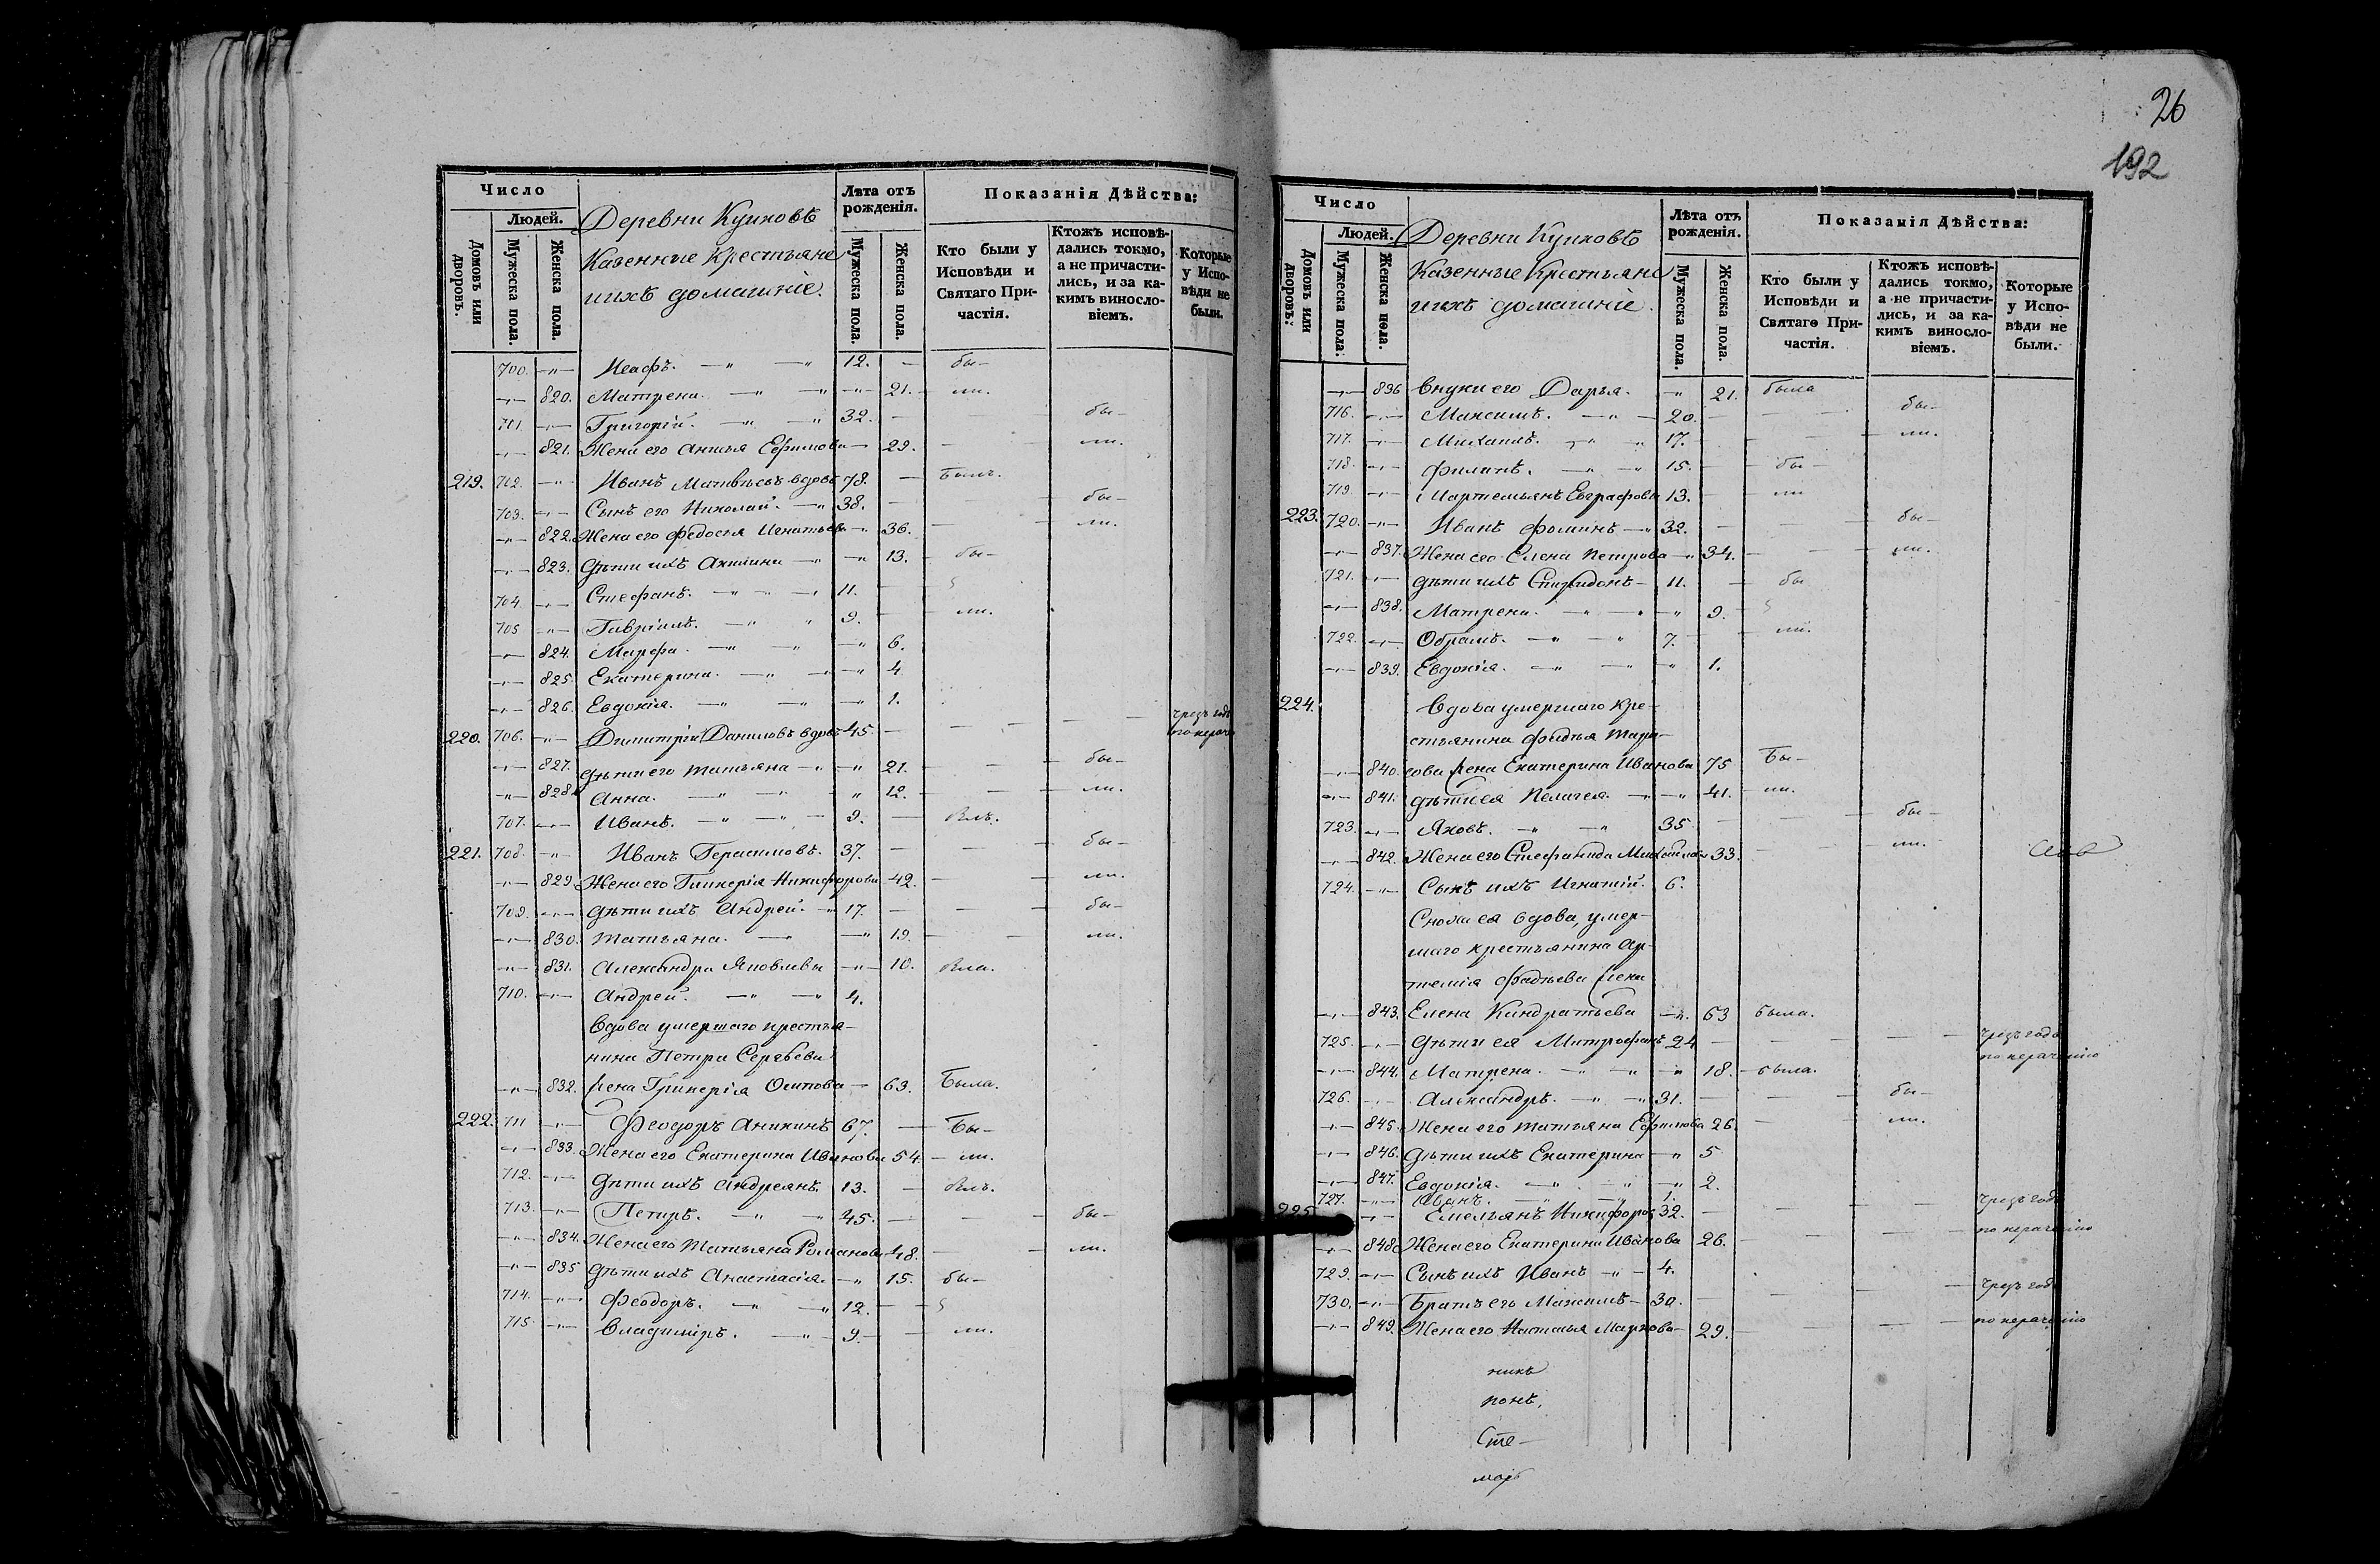 Число
Людей.
Домовъ или дворовъ.
Мужеска пола.
Женска пола.
Деревни
Казенные Крестьяне
ихъ домашніе.
Лѣта отъ рожденія.
Мужеска пола.
Женска пола.
Показанія Дѣйства:
Кто были у Исповѣди и Святаго Причастія.
Ктожъ исповѣдались токмо, а не причастились, и за какимъ винословіемъ.
Которые у Исповѣди не были.
700. Иеафъ. 12. бы-
820. Матрена. 21. ли.
701. Григорій. 32. бы-
821. Жена его Ефимова 29. ли.
219. 702. Иванъ Матвѣевъ вдовъ 78. Былъ.
703. Сынъ его Николай. 38. бы-
822. Жена его Федосья Игнатьева 36. ли.
823. Дѣти ихъ Акилина 13. бы-
704. Стефанъ. 11.
705 Гавріилъ. 9. ли.
824. Марфа. 6.
825. Екатерина. 4
826. Евдокія. 1.
220. 706. Димитрій Даниловъ вдовъ 45. чрезъ годъ
827. Дѣти его Татьяна 21. бы-
828. Анна. 12. ли.
707. Иванъ. 9.
221. 708. Иванъ Герасимовъ. 37. бы-
829. Жена его Гликерія Никифорова 42. ли.
709. Дѣти ихъ Андрей. 17. бы-
830. Татьяна. 19. ли.
831. Александра Яковлева 10.
710. Андрей. 4.
Вдова умершаго крестья-
нина Петра Сергѣева
832. жена Гликерія Осипова 63. Была.
222. 711 Феодоръ Аникинъ 67. Бы-
833. Жена его Екатерина Иванова 54 ли.
712. Дѣти ихъ Андреянъ. 13.
713. Петръ. 45. бы-
834. Жена его Татьяна Романова 48. ли.
835 Дѣти ихъ Анастасія. 15. бы-
714. Феодоръ. 12.
715. Владиміръ. 9. ли.
26
192
Число
Людей.
Домовъ или дворовъ.
Мужеска пола.
Женска пола.
Деревни
Казенные Крестьяне
ихъ домашніе.
Лѣта отъ рожденія.
Мужеска пола.
Женска пола.
Показанія Дѣйства:
Кто были у Исповѣди и Святаго Причастія.
Ктожъ исповѣдались токмо, а не причастились, и за какимъ винословіемъ.
Которые у Исповѣди не были.
836 Внуки его Дарья. 21. была
716. Максимъ. 20. бы-
717. Михаилъ. 17. ли.
718. Филипъ. 15. бы-
719 Мартемьянъ Евграфовы 13. ли
223. 720. Иванъ Фоминъ 32. бы-
837. Жена его Елена Петрова 34. ли.
721. Дѣти ихъ Спиридонъ 11. бы
838. Матрена. 9.
722. Обрамъ. 7. ли.
839. Евдокія. 1.
224. Вдова умершаго Кре-
стьянина Фадѣя Тара-
840. сова жена Екатерина Иванова 75 Бы-
841. Дѣти ея Пелагея. 41. ли.
723. Яковъ. 35 бы-
842. Жена его Стефанида Михайлова 33. ли.
724. Сынъ ихъ Игнатій. 6.
Сноха ея вдова, умер-
шаго крестьянина Ар-
темія Фадѣева жена
843. Елена Кандратьева 63 была.
725. Дѣти ея Митрофанъ 24 чрезъ годъ
по нераденію
844. Матрена. 18. была.
726. Александръ. 31. бы-
845. Жена его Татьяна Ефимова 26. ли.
846. Дѣти ихъ Екатерина 5
847. Евдокія. 2.
727. Иванъ. 1.
225 Емельянъ Никифоровъ 32. чрезъ годъ
848. Жена его Екатерина Иванова 26. по нераденію
729. Сынъ ихъ Иванъ 4.
730. Братъ его Максимъ 30. чрезъ годъ
849. Жена его Наталья Маркова 29. по нераденію
Сте-